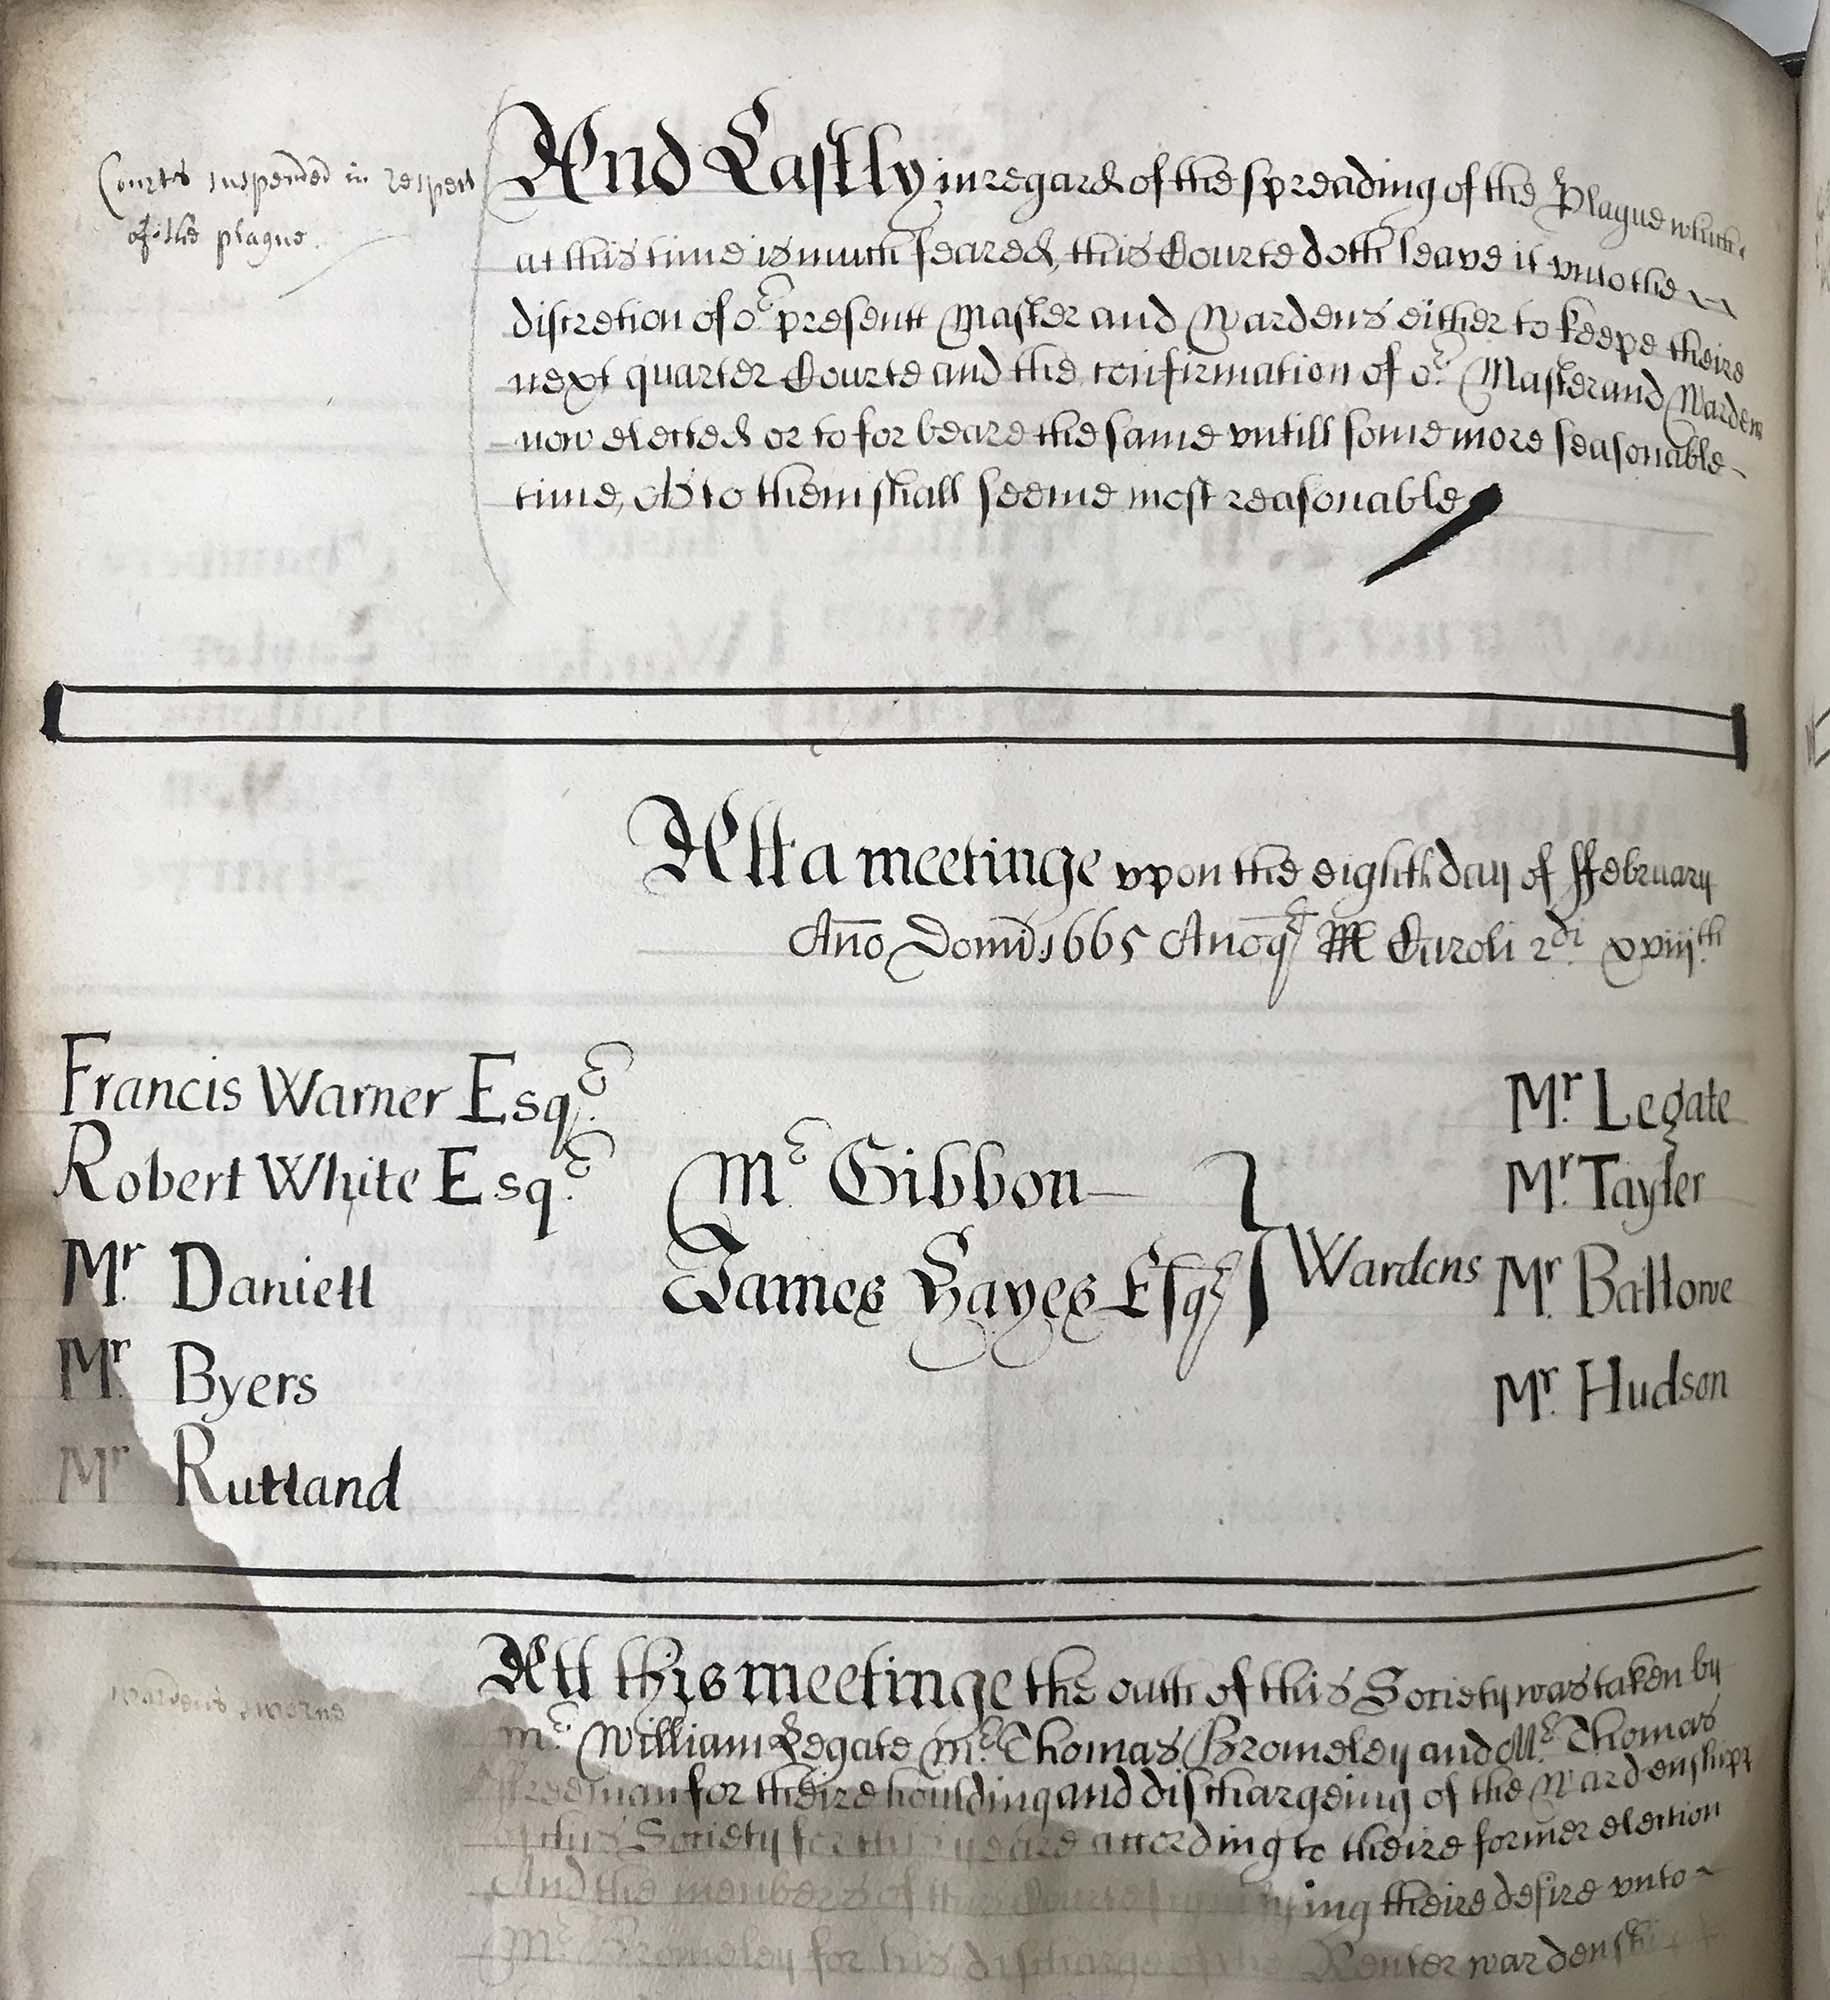 Courts suspended in respect
of the plague.
And Lastly in regard of the spreading of the Plague which
at this time is much feared, this Courte doth leave it vnto the
discretion of or. presentt Master and Wardens either to keepe theire
next quarter Courte and the confirmation of or. Master and Wardens
now elected or to for beare the same vntill some more seasonable
time, as to them shall seeme most reasonable
Att a meetinge vpon the eighth day of ffebruary
Ano Domi. 1665 Anoq RR Caroli 2di. xviijth.
Francis Warner Esqr.
Robert White Esqr.
Mr. Daniell
Mr. Byers
Mr Rutland
Mr. Gibbon
James Hayes Esqr
Wardens
Mr. Legate
Mr. Tayler
Mr. Ballowe
Mr. Hudson
Wardens sworne
Att this meetinge the oath of this Society was taken by
Mr. William Legate Mr. Thomas Bromeley and Mr. Thomas
ffreeman for theire houlding and dischargeing of the Wardenshipp
of this Society for this yeare according to theire former election
And the members of this Courte ing theire desire vnto
Mr. Bromeley for his discharge of the Renter wardenship